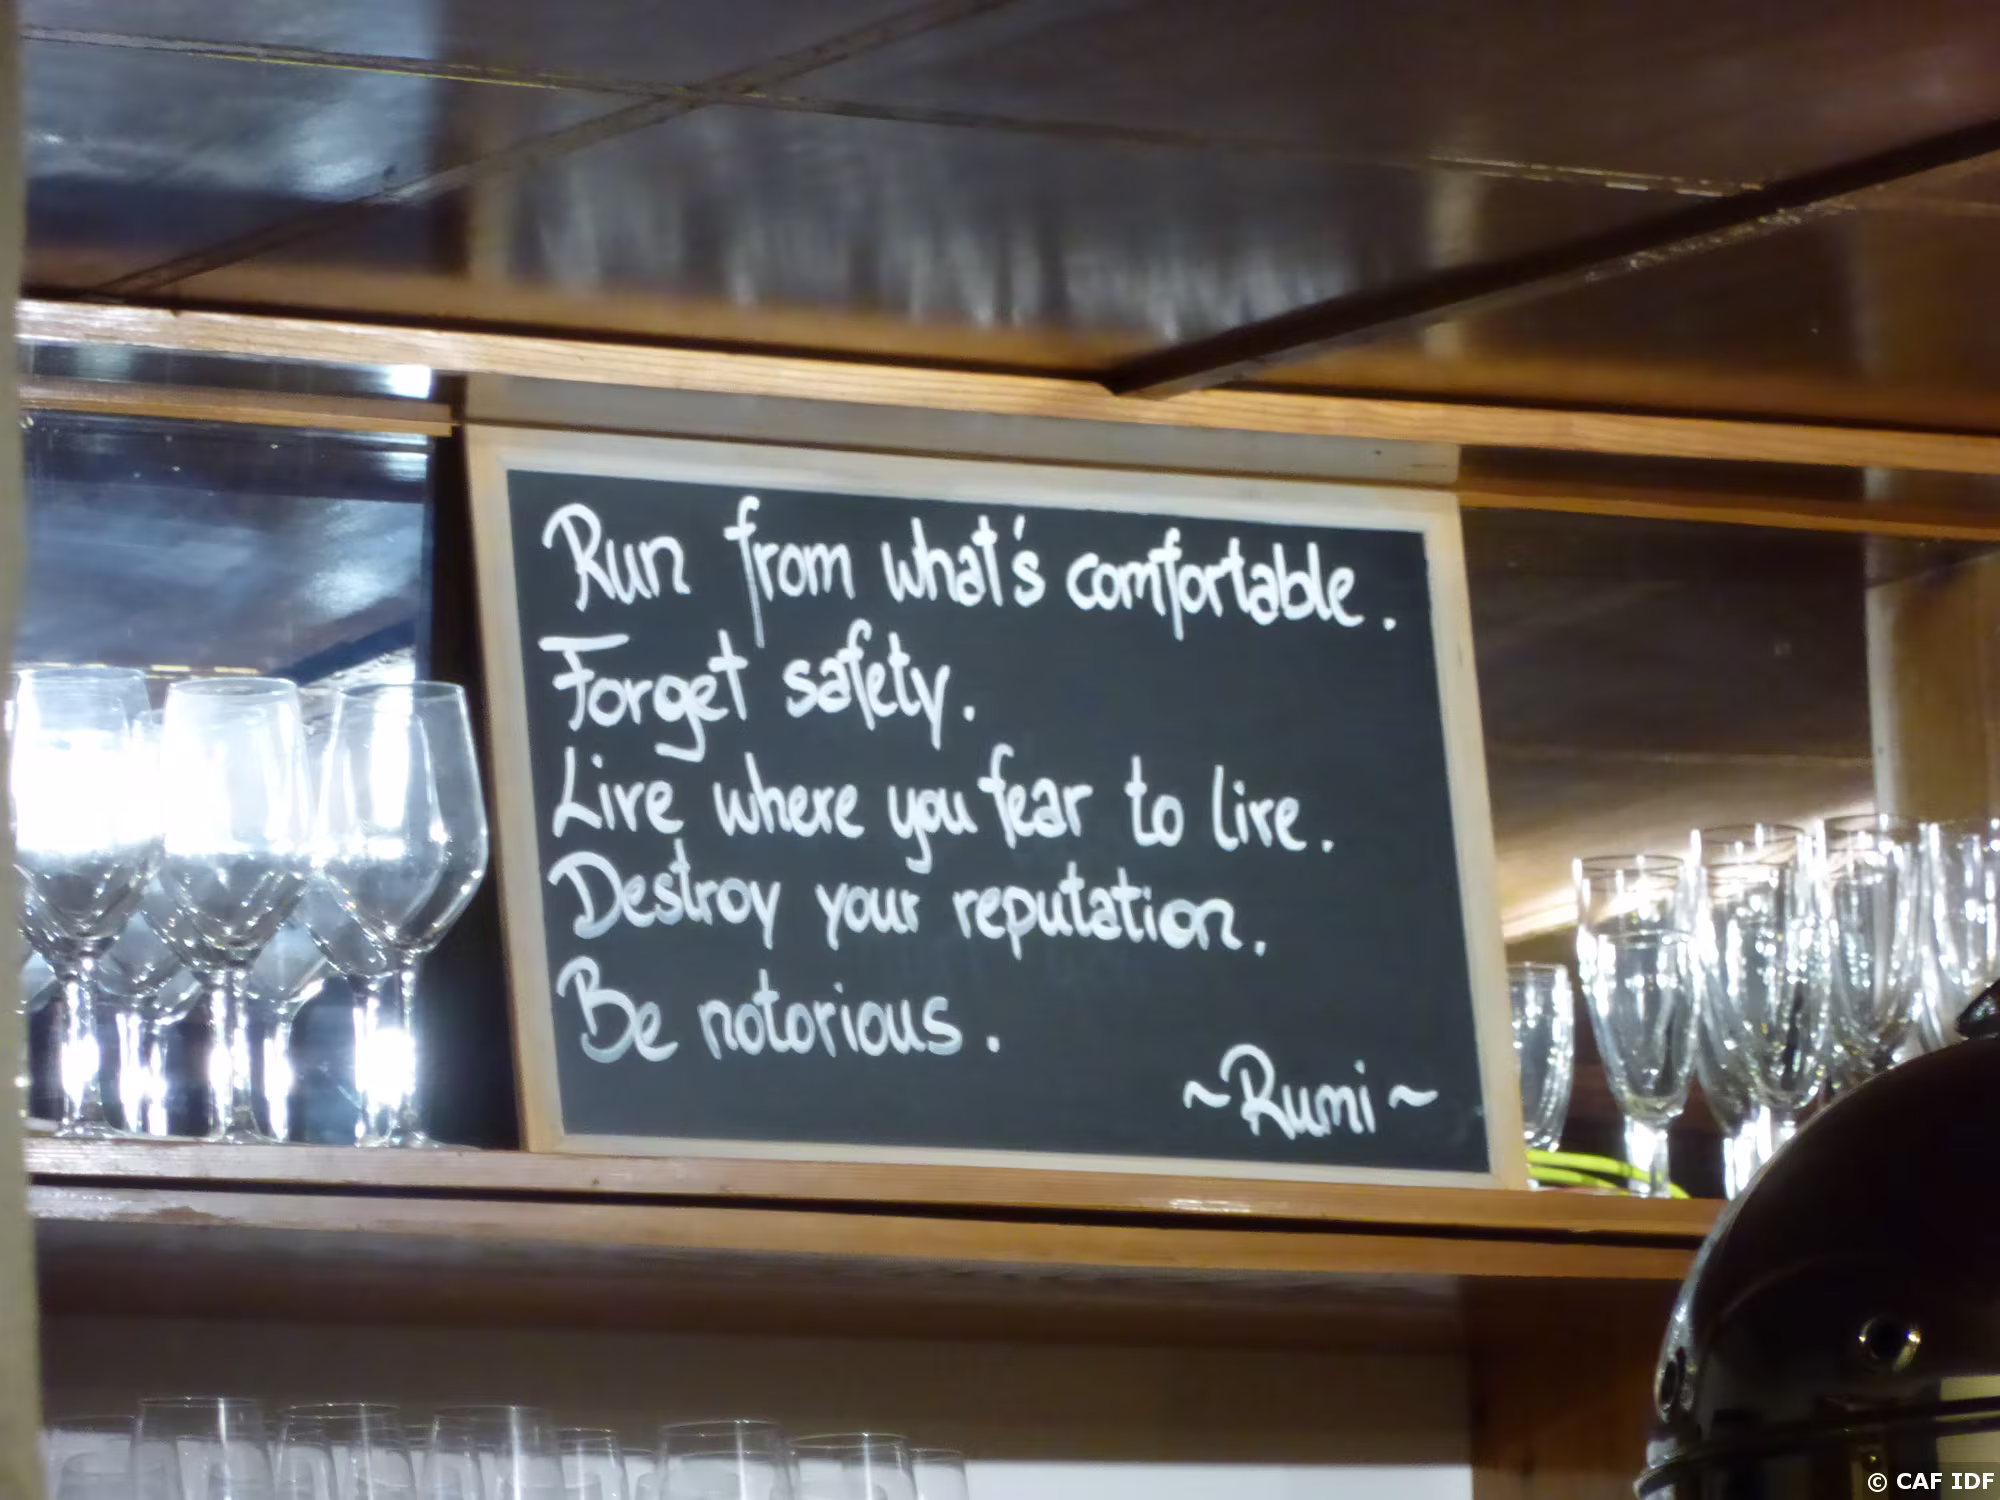 Run from what's comfortable.
Forget safety.
Live where you fear to live.
Destroy your reputation.
Be notorious.
~Rumi~
© CAF IDF